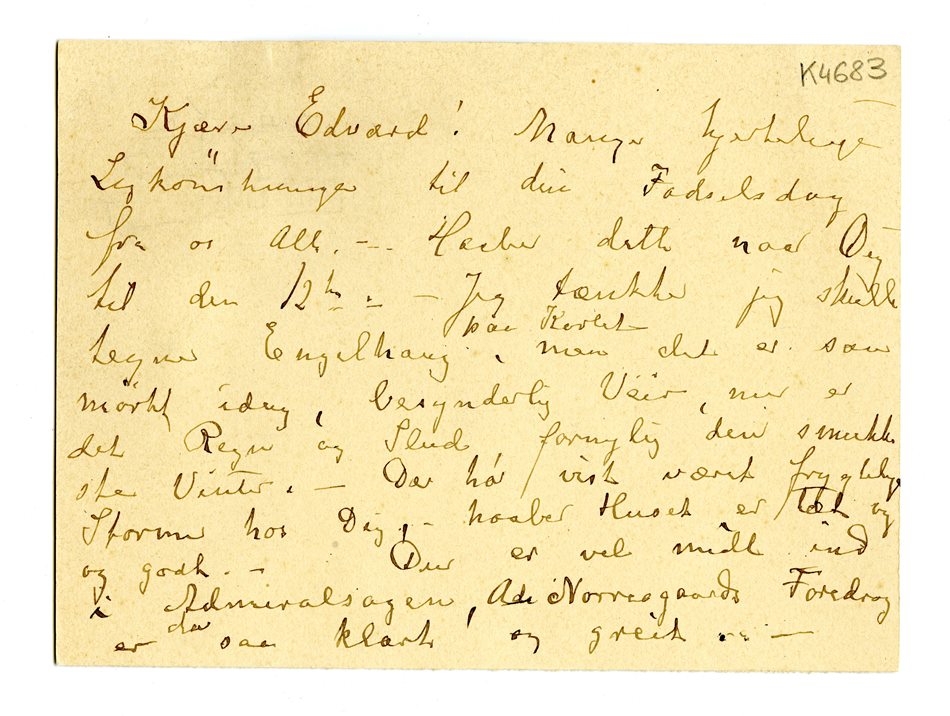 K4683
Kjære Edvard! Mange hjertelige
Lykönskninger til din Fødselsdag
fra os Alle. – Haaber dette naar Dig
til den 12te – Jeg tænkte jeg skulde
paa Kortet
tegne Engelhaug, men det er saa
mörkt idag, besynderlig Veir, nu er
det Regn og Slud fornylig den smukke
ste Vinter. – Der har vist været frygtelige
Storme hos Dig, – haaber Huset er tæt og
og godt. – Du er vel midt ind
i Admiralsagen, Norregaards Foredrag
er da saa klart og greit –